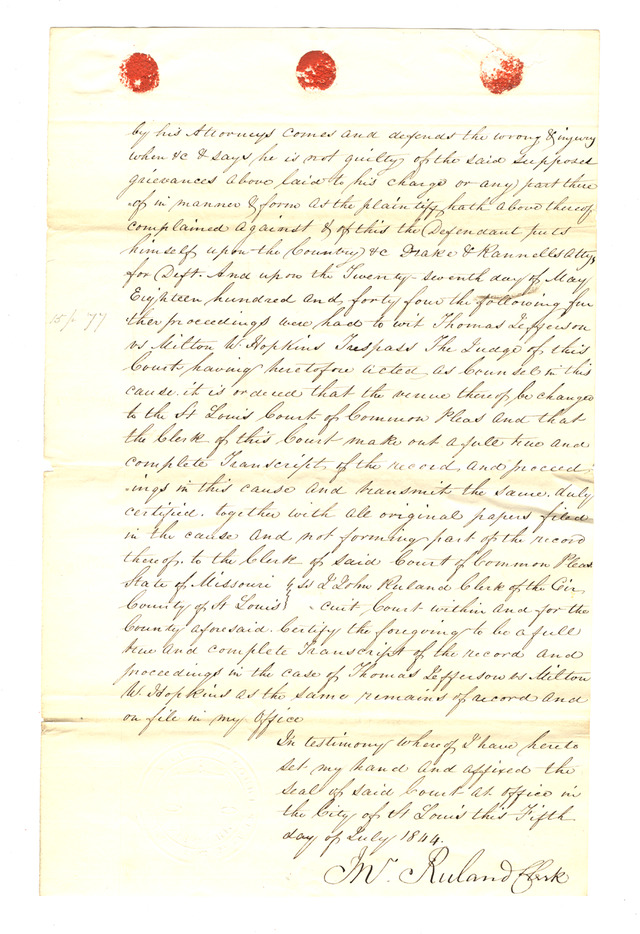 by his Attorneys comes and defends the wrong & injury
when &c & says he is not guilty of the said supposed
grievances above laid to his charge or any part there
of in manner & form as the plaintiff hath above thereof
complained against & of this the Defendant puts
himself upon the Country &c Drake & Rannells Attys
for Deft. And upon the Twenty-seventh day of May
Eighteen hundred and forty four the following fur
15 p 77
ther proceedings were had to wit Thomas Jefferson
vs Milton W. Hopkins Trespass The Judge of this
Court having heretofore acted as Counsel in this
cause. it is ordered that the venue thereof be changed
to the St Louis Court of Common Pleas and that
the Clerk of this Court make out a full true and
complete Transcript of the record and proceed
-ings in this cause and transmit the same. duly
certified. together with all original papers filed
in the cause and not forming part of the record
thereof. to the Clerk of said Court of Common Pleas
State of Missouri } ss I John Ruland Clerk of the Cir
County of St Louis } -cuit Court within and for the
County aforesaid. Certify the foregoing to be a full
true and complete Transcript of the record and
proceedings in the case of Thomas Jefferson vs Milton
W. Hopkins as the same remains of record and
on file in my office
In testimony whereof I have hereto
set my hand and affixed the
seal of said Court at office in
the City of St Louis this Fifth
day of July 1844.
Jno. Ruland Clerk